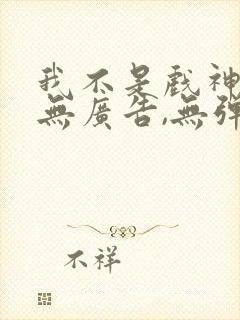 我不是戲神
無廣告,無彈
不祥